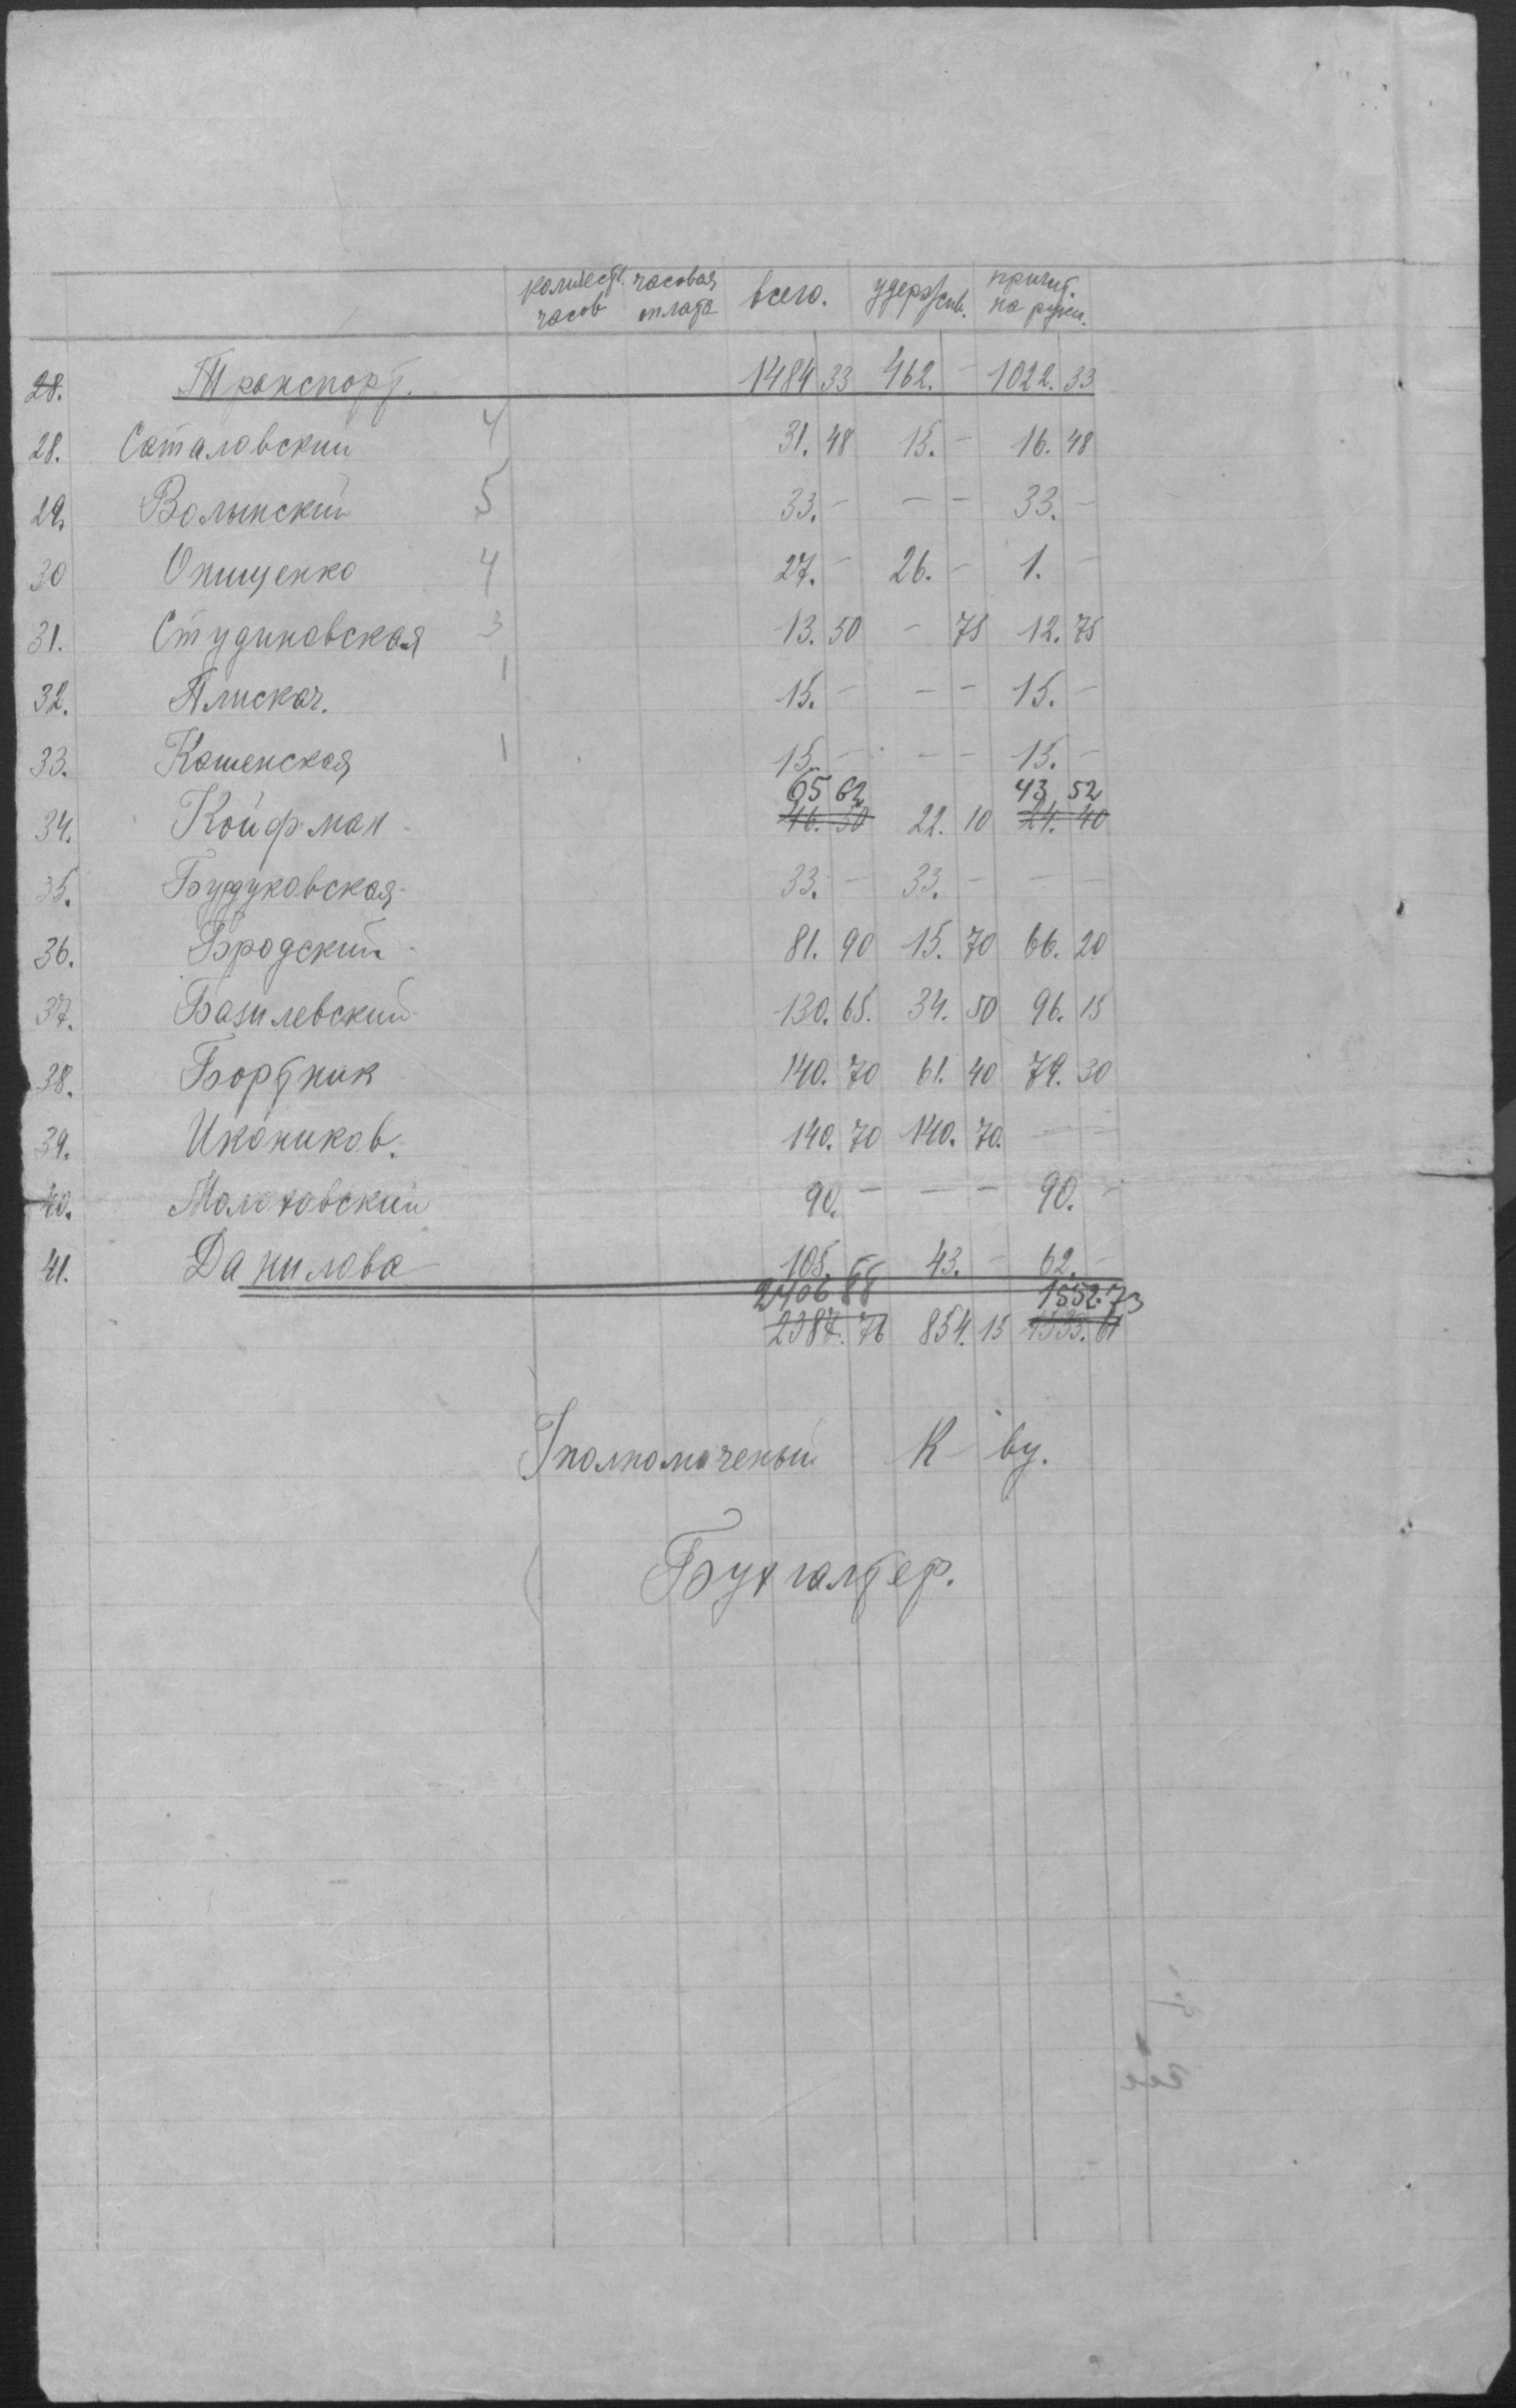 количест. часов часовая оплата всего. удержив. причит. на руки.
28. Транспорт. 1484 33 462. - 1022. 33
28. Саталовский 4 31. 48 15. - 16. 48
29. Волынский 5 33. - - - 33. -
30 Онищенко 4 27. - 26. - 1. -
31. Студиновская 3 13. 50 - 75 12. 75
32. Плискач. 1 15. - - - 15. -
33. Кашенская 1 15. - - - 15. -
65 62 43 52
34. Койфман 46. 50 22. 10 24. 40
35. Будуковская 33. - 33. - - -
36. Бродский 81. 90 15. 70 66. 20
37. Базилевский 130. 65. 34. 50 96. 15
38. Бортник 140. 70 61. 40 79. 30
39. Икоников. 140. 70 140. 70. - -
40. Молоховский 90. - - - 90. -
41. Данилова 105. - 43. - 62. -
2406 88 1552. 73
2387. 76 854. 15 1533. 61
Уполномоченый К-ву.
Бухгалтер.